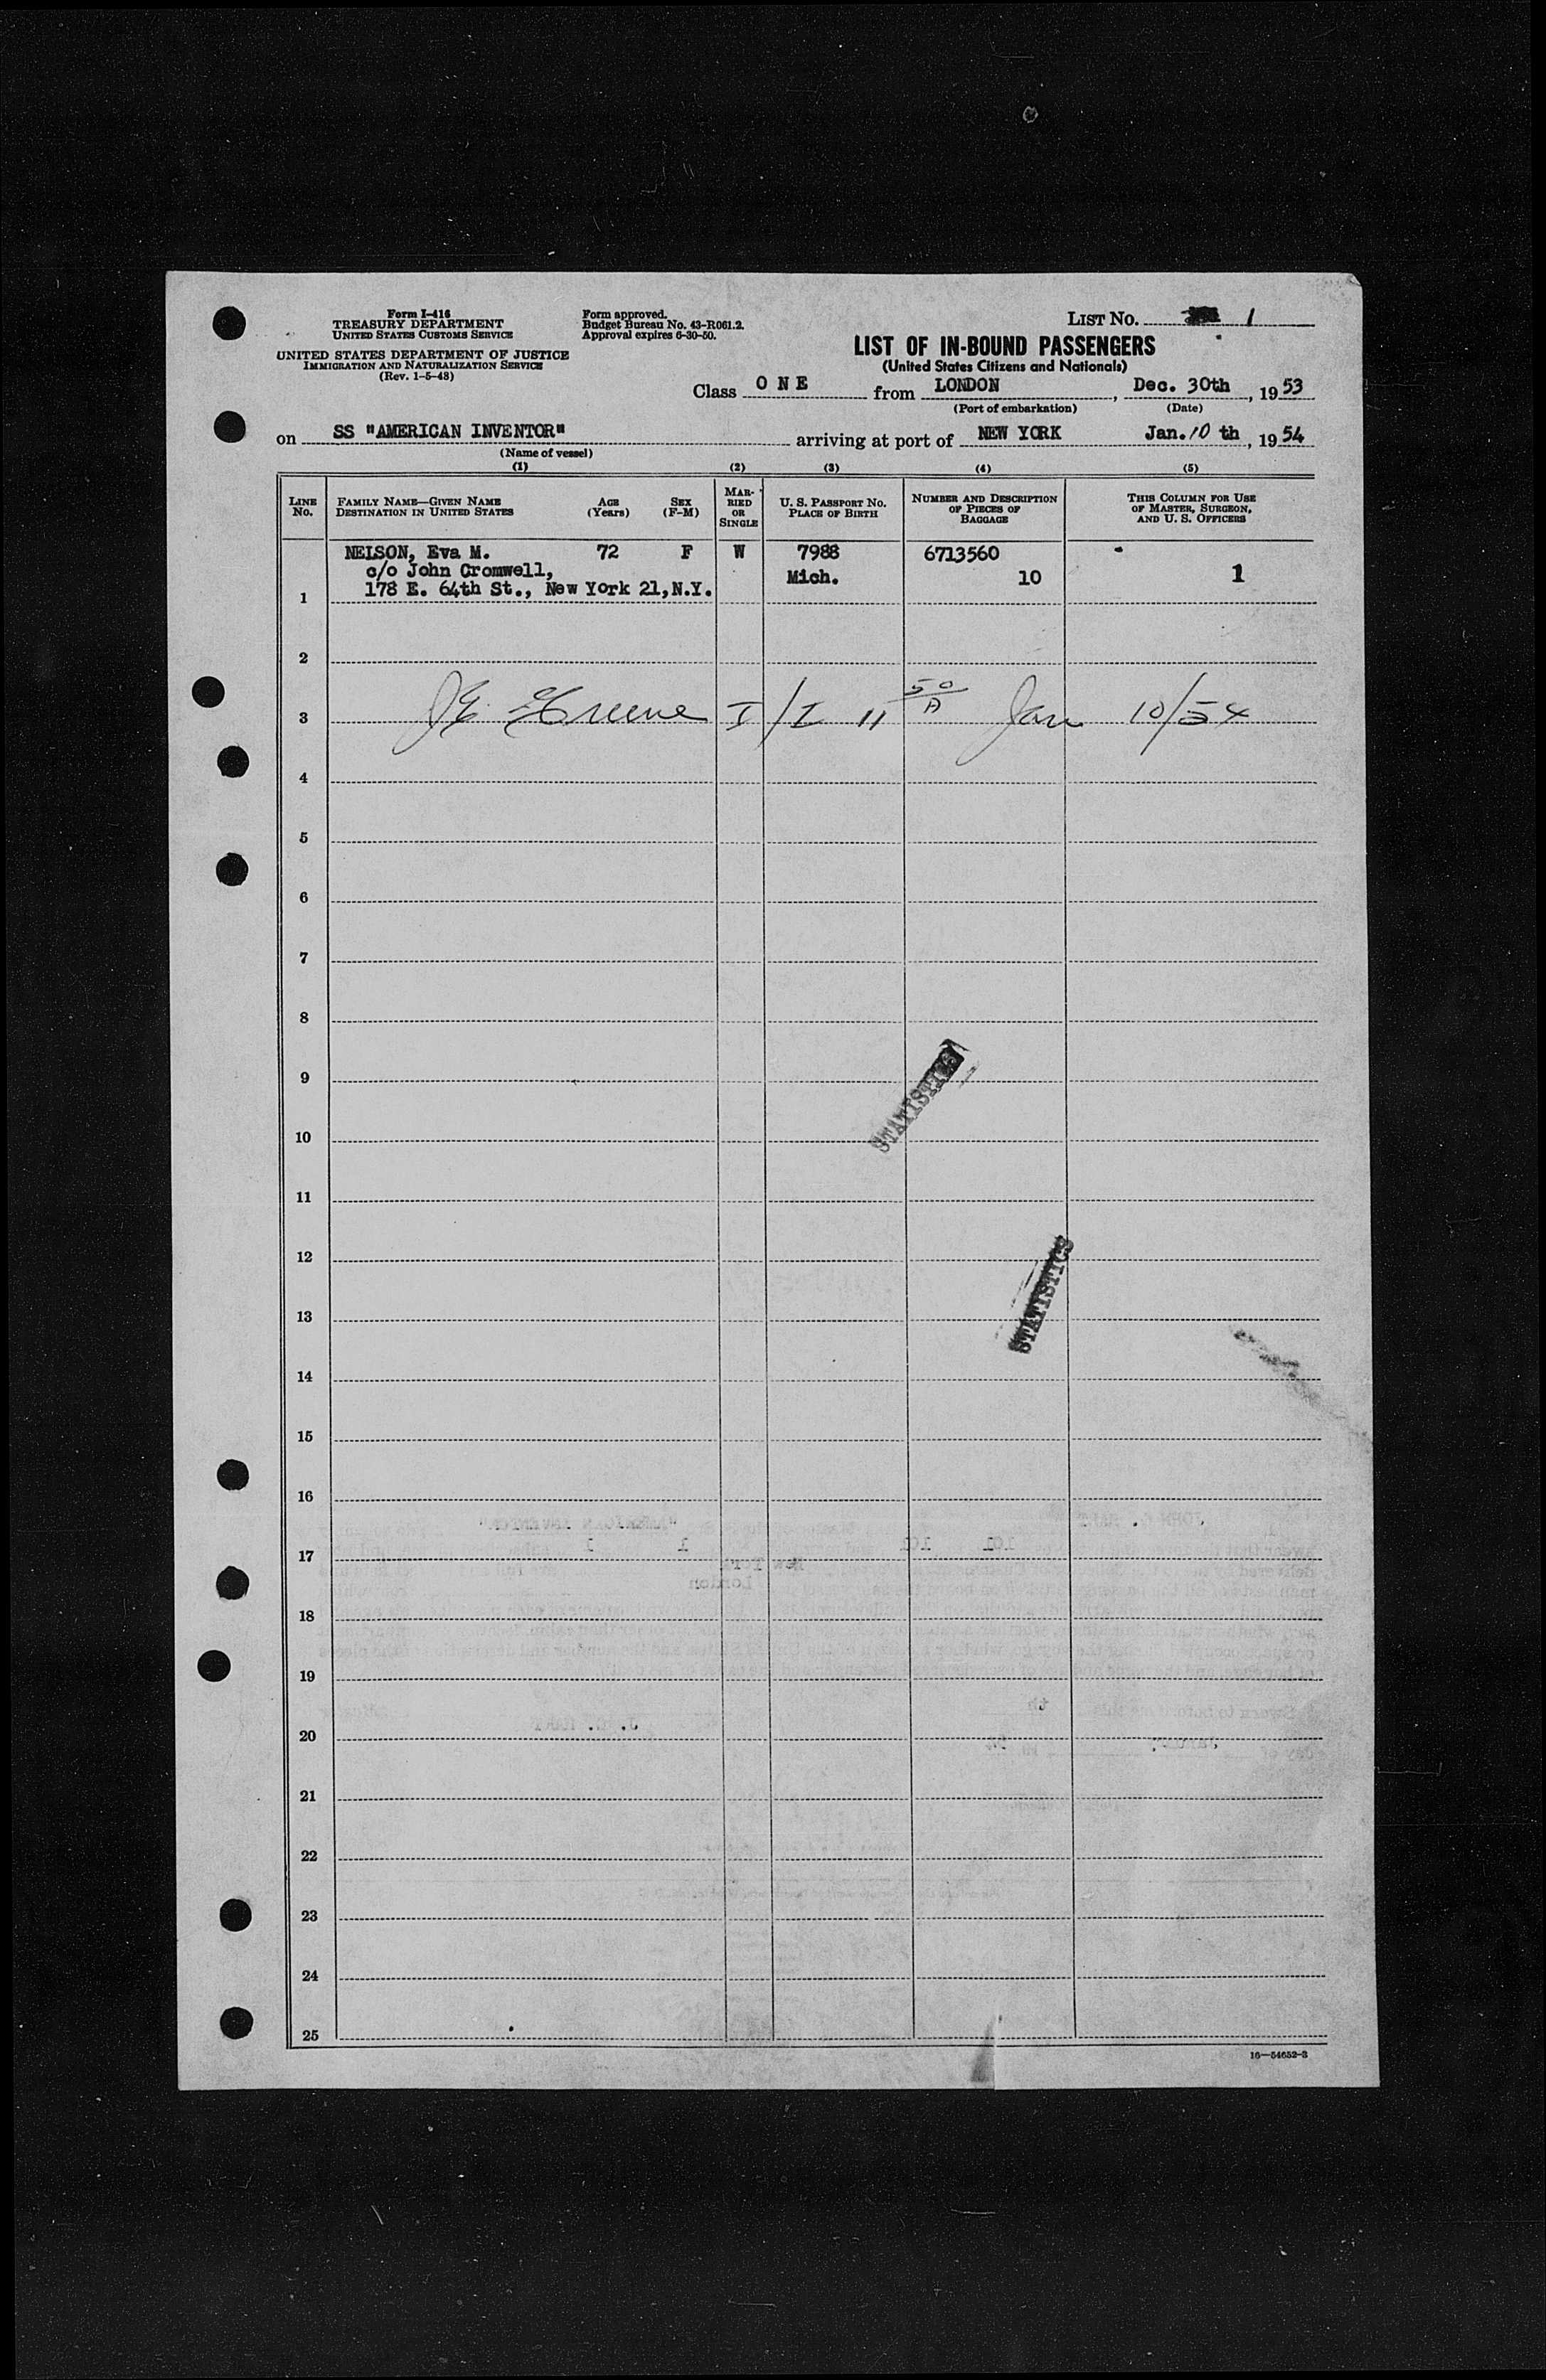 Form I-416
TREASURY DEPARTMENT
UNITED STATES CUSTOMS SERVICE
UNITED STATES DEPARTMENT OF JUSTICE
IMMIGRATION AND NATURALIZATION SERVICE
(Rev. 1-5-48)
Form approved.
Budget Bureau No. 43-R061.2.
Approval expires 6-30-50.
LIST NO. 1
LIST OF IN-BOUND PASSENGERS
(United States Citizens and Nationals)
Class ONE from LONDON, Dec. 30th, 1953
(Port of embarkation) (Date)
on SS "AMERICAN INVENTOR" arriving at port of NEW YORK Jan. 10 th, 1954
(Name of vessel)
(1) (2) (3) (4) (5)
LINE No.
FAMILY NAME—GIVEN NAME
DESTINATION IN UNITED STATES
AGE (Years)
SEX (F-M)
MARRIED OR SINGLE
U. S. PASSPORT NO.
PLACE OF BIRTH
NUMBER AND DESCRIPTION
OF PIECES OF
BAGGAGE
THIS COLUMN FOR USE
OF MASTER, SURGEON,
AND U. S. OFFICERS
NELSON, Eva M. 72 F W 7988 6713560
c/o John Cromwell, Mich. 10 1
1 178 E. 64th St., New York 21, N.Y.
2
3 Greene I/I 11 50/A Jan 10/54
4
5
6
7
8
9
STATISTICS
10
11
12
STATISTICS
13
14
15
16
17
18
19
20
21
22
23
24
25
16—54652-2